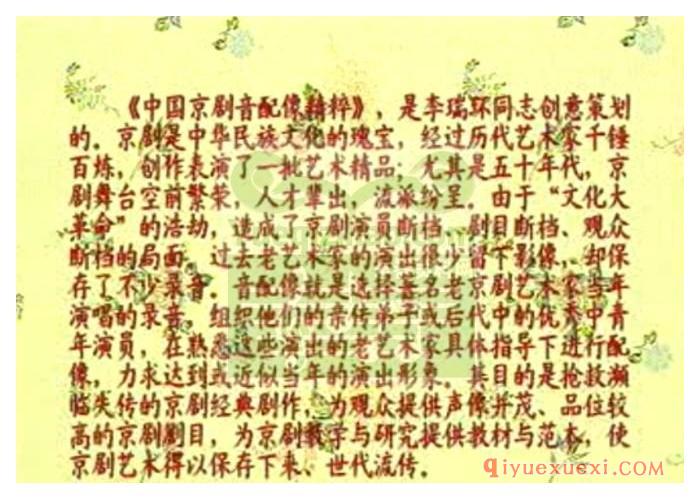 《中国京剧音配像精粹》，是李瑞环同志创意策划
的。京剧是中华民族文化的瑰宝，经过历代艺术家千锤
百炼，创作表演了一批艺术精品；尤其是五十年代，京
剧舞台空前繁荣，人才辈出，流派纷呈。由于“文化大
革命”的浩劫，造成了京剧演员断档、剧目断档、观众
断档的局面。过去老艺术家的演出很少留下影像，却保
存了不少录音。音配像就是选择著名老京剧艺术家当年
演唱的录音，组织他们的亲传弟子或后代中的优秀中青
年演员，在熟悉这些演出的老艺术家具体指导下进行配
像，力求达到或近似当年的演出形象。其目的是抢救濒
临失传的京剧经典剧作，为观众提供声像并茂、品位较
高的京剧剧目，为京剧教学与研究提供教材与范本，使
京剧艺术得以保存下来、世代流传。
qiyuexuexi.com